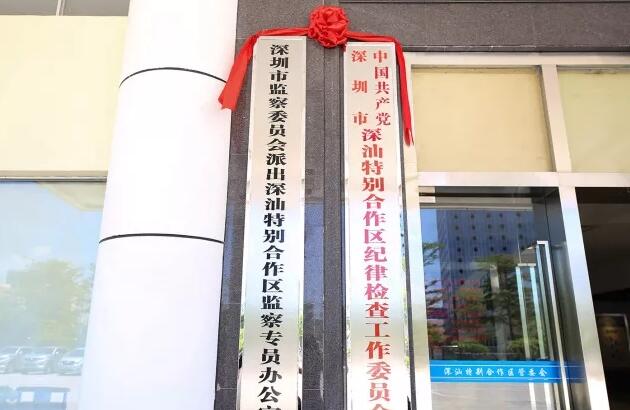 中国共产党
深圳市
深汕特别合作区纪律检查工作委员会
深圳市监察委员会派出深汕特别合作区监察专员办公室
深汕特别合作区管委会